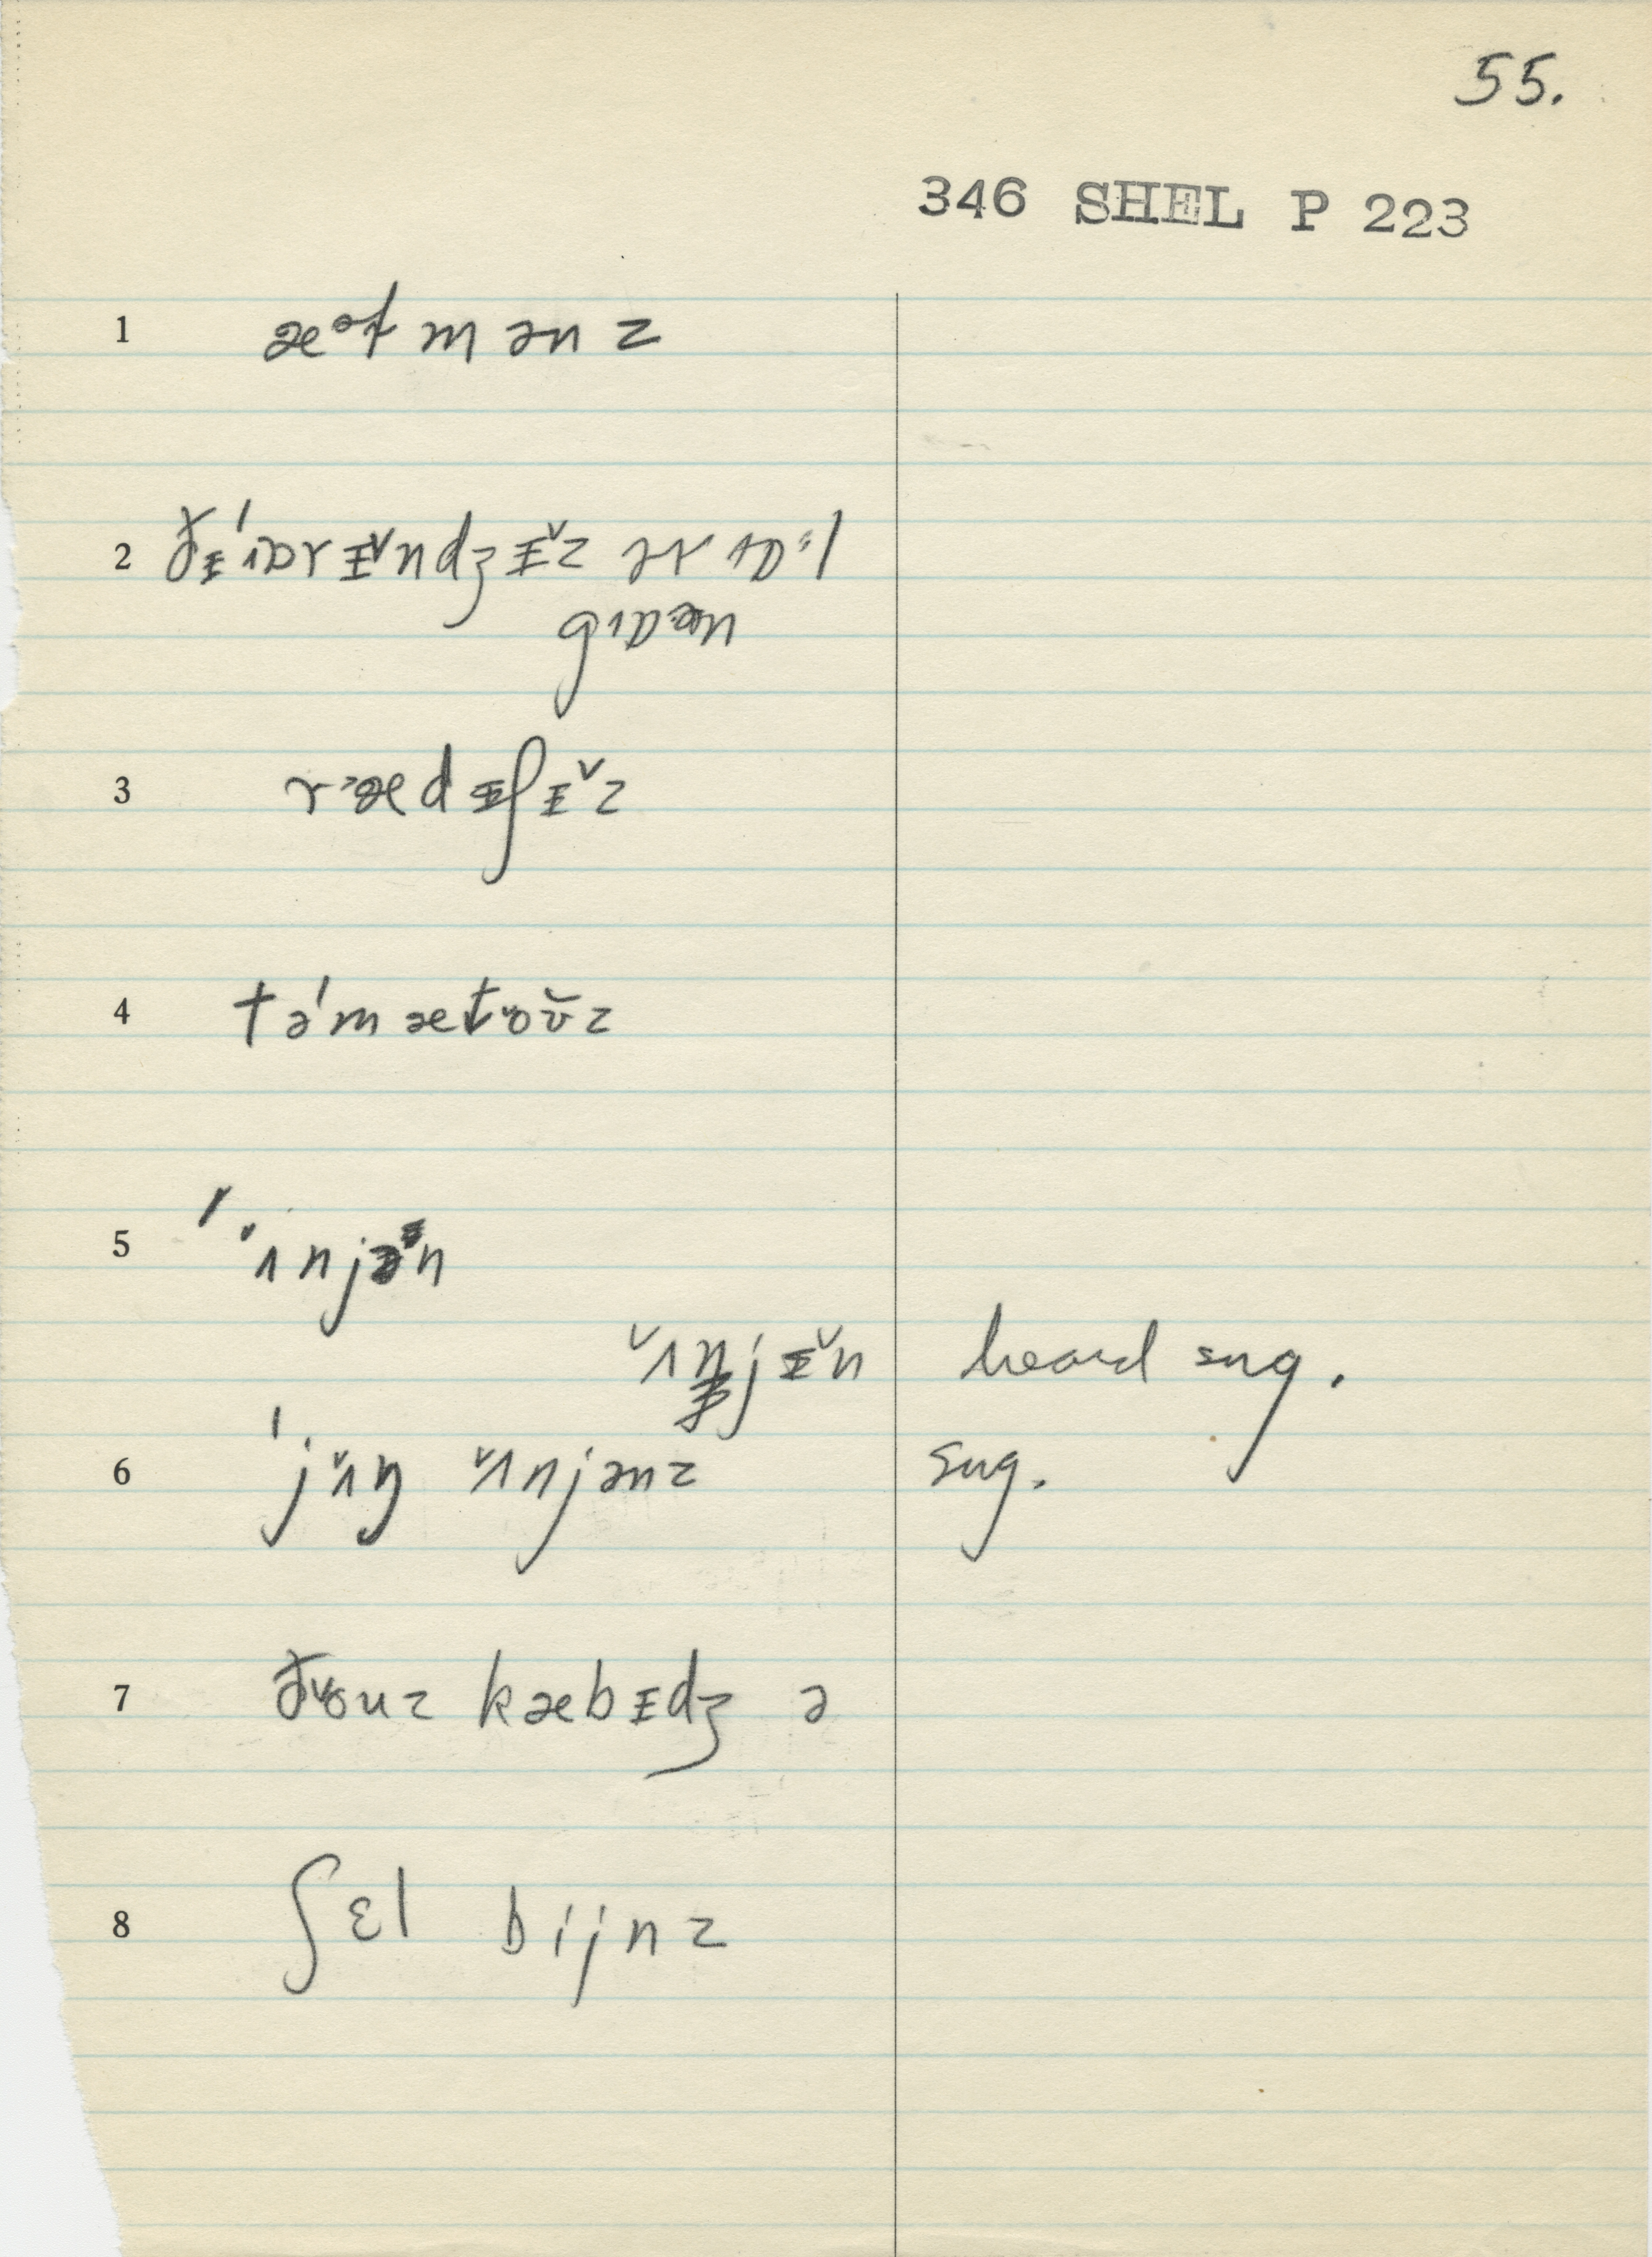 55.
346 SHEL P 223
1 æətmənz
2 ðᵻ́ɒrᵻ̌ndʒᵻ̌z ər ɒl
3 rædᵻʃᵻ̌z
4 tə́mætoʊ̌z
5 ʌnjən
ʌ̌njᵻ̌n heard sng.
6 jʌ̌ŋ ʌ̌njənz sng.
7 ðouz kæbᵻdʒ ə
8 ʃɛl bijnz